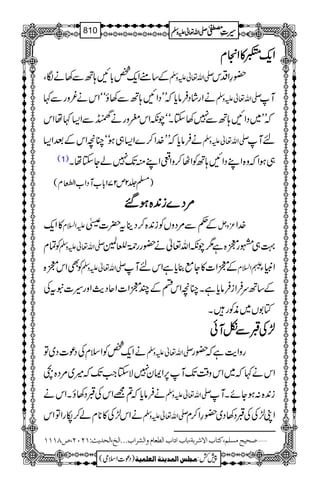 سیرتِ مصطفی صلی اللہ تعالیٰ علیہ وسلم 810
ایک متکبر کا انجام
حضورِ اقدس صلی اللہ تعالیٰ علیہ وسلم کے سامنے ایک شخص بائیں ہاتھ سے کھانے لگا،
آپ صلی اللہ تعالیٰ علیہ وسلم نے ارشاد فرمایا کہ ’’دائیں ہاتھ سے کھاؤ‘‘ اس نے غرور سے کہا
کہ ’’میں دائیں ہاتھ سے نہیں کھا سکتا۔‘‘ چونکہ اس مغرور نے گھمنڈ سے ایسا کہا تھا اس
لئے آپ صلی اللہ تعالیٰ علیہ وسلم نے فرمایا کہ ’’خدا کرے ایسا ہی ہو‘‘ چنانچہ اس کے بعد ایسا
ہی ہوا کہ وہ اپنے دائیں ہاتھ کو اٹھا کر واقعی اپنے منہ تک نہیں لے جا سکتا تھا۔ (1)
(مسلم جلد۲ ص۱۷۲ باب آداب الطعام)
مردے زندہ ہو گئے
خدا عزوجل کے حکم سے مردوں کو زندہ کر دینا یہ حضرت عیسیٰ علیہ السلام کا ایک
بہت ہی مشہور معجزہ ہے مگر چونکہ اللہ تعالیٰ نے حضور رحمۃ للعالمین صلی اللہ تعالیٰ علیہ وسلم کو تمام
انبیاء علیہم السلام کے معجزات کا جامع بنایا ہے اس لئے آپ صلی اللہ تعالیٰ علیہ وسلم کو بھی اس معجزہ
کے ساتھ سرفراز فرمایا ہے۔ چنانچہ اس قسم کے چند معجزات احادیث اور سیرتِ نبویہ کی
کتابوں میں مذکور ہیں۔
لڑکی قبر سے نکل آئی
روایت ہے کہ حضور صلی اللہ تعالیٰ علیہ وسلم نے ایک شخص کو اسلام کی دعوت دی تو
اس نے کہا کہ میں اس وقت تک آپ پر ایمان نہیں لا سکتا جب تک کہ میری مردہ بچی
زندہ نہ ہو جائے۔ آپ صلی اللہ تعالیٰ علیہ وسلم نے فرمایا کہ تم مجھے اس کی قبر دکھاؤ۔ اس نے
اپنی لڑکی کی قبر دکھا دی حضور اکرم صلی اللہ تعالیٰ علیہ وسلم نے اس لڑکی کا نام لے کر پکارا تو اس
صحیح مسلم، کتاب الاشربۃ، باب اداب الطعام والشراب...الخ، الحدیث: ۲۰۲۱، ص۱۱۱۸
پیش کش: مجلس المدینۃ العلمیۃ (دعوتِ اسلامی)